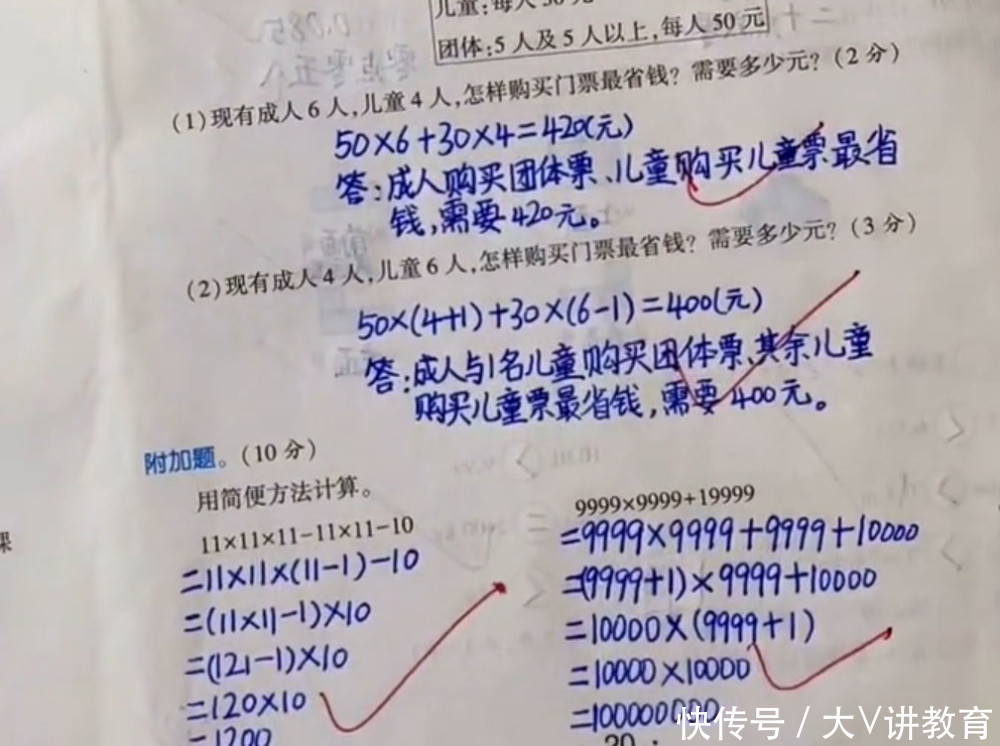 儿童:每人30元
团体:5人及5人以上,每人50元
(1)现有成人6人,儿童4人,怎样购买门票最省钱?需要多少元?(2分)
50×6+30×4=420(元)
答:成人购买团体票、儿童购买儿童票最省
钱,需要420元。
(2)现有成人4人,儿童6人,怎样购买门票最省钱?需要多少元?(3分)
50×(4+1)+30×(6-1)=400(元)
答:成人与1名儿童购买团体票、其余儿童
购买儿童票最省钱,需要400元。
附加题。(10分)
用简便方法计算。
11×11×11-11×11-10
=11×11×(11-1)-10
=(11×11-1)×10
=(121-1)×10
=120×10
=1200
9999×9999+19999
=9999×9999+9999+10000
=(9999+1)×9999+10000
=10000×(9999+1)
=10000×10000
=100000000
课
快传号 / 大V讲教育